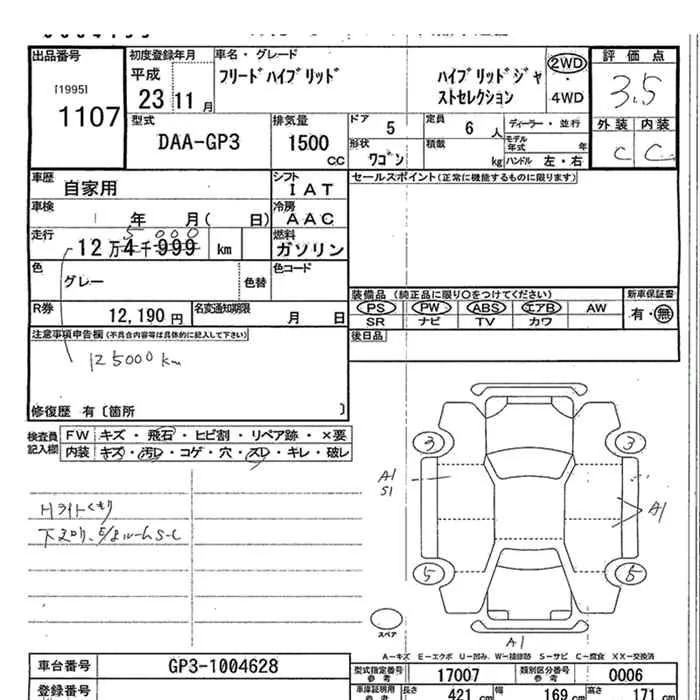 出品番号 初度登録年月 車名・グレード 評価点
[1995] 平成 フリードハイブリッド ハイブリッドジャ 2WD 3.5
1107 23 11月 ストセレクション 4WD
型式 排気量 ドア 5 定員 6人 ディーラー・並行 外装 内装
DAA-GP3 1500 CC 形状 ワゴン 積載 kg モデル年式 年 C C
ハンドル 左・右
車歴 自家用 シフト IAT セールスポイント(正常に機能するものに限ります)
車検 年 月( 日) 冷房 AAC
5 000
走行 12万4千999 km 燃料 ガソリン
色 グレー 色替 色コード
装備品(純正品に限り○をつけてください) 新車保証書
R券 12,190円 名変通知期限 月 日 PS PW ABS エアB AW 有・無
SR ナビ TV カワ
注意事項申告欄(不具合内容等は具体的に記入して下さい) 後日品
125000km
修復歴 有〔箇所 〕
検査員記入欄 FW キズ・飛石・ヒビ割・リペア跡・×要
内装 キズ・汚レ・コゲ・穴・スレ・キレ・破レ
3 3
A1
S1
A1
Hライトくもり
5 5
スペア
A1
A-キズ E-エクボ U-凹み W-補修跡 S-サビ C-腐食 XX-交換済
車台番号 GP3-1004628 型式指定番号 参考 17007 類別区分番号 参考 0006
登録番号 車庫証明用 参考 長さ 421cm 幅 169cm 高さ 171cm